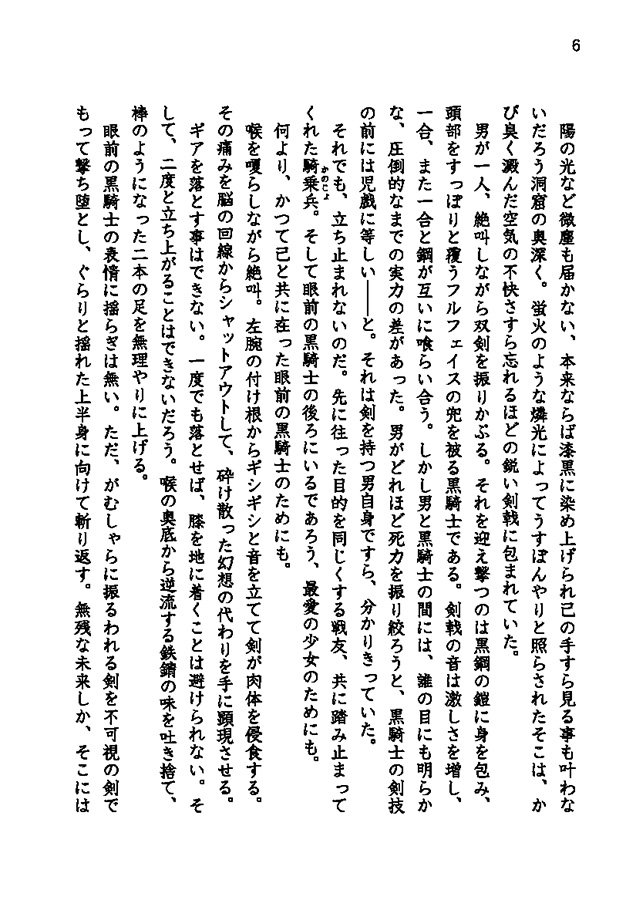 6
陽の光など微塵も届かない、本来ならば漆黒に染め上げられ己の手すら見る事も叶わな
いだろう洞窟の奥深く。蛍火のような燐光によってうすぼんやりと照らされたそこは、か
び臭く澱んだ空気の不快さすら忘れるほどの鋭い剣戟に包まれていた。
男が一人、絶叫しながら双剣を振りかぶる。それを迎え撃つのは黒鋼の鎧に身を包み、
頭部をすっぽりと覆うフルフェイスの兜を被る黒騎士である。剣戟の音は激しさを増し、
一合、また一合と鋼が互いに喰らい合う。しかし男と黒騎士の間には、誰の目にも明らか
な、圧倒的なまでの実力の差があった。男がどれほど死力を振り絞ろうと、黒騎士の剣技
の前には児戯に等しい――と。それは剣を持つ男自身ですら、分かりきっていた。
それでも、立ち止まれないのだ。先に往った目的を同じくする戦友、共に踏み止まって
くれた騎乗兵。そして眼前の黒騎士の後ろにいるであろう、最愛の少女のためにも。
かのじょ
何より、かつて己と共に在った眼前の黒騎士のためにも。
喉を嗄らしながら絶叫。左腕の付け根からギシギシと音を立てて剣が肉体を侵食する。
その痛みを脳の回線からシャットアウトして、砕け散った幻想の代わりを手に顕現させる。
ギアを落とす事はできない。一度でも落とせば、膝を地に着くことは避けられない。そ
して、二度と立ち上がることはできないだろう。喉の奥底から逆流する鉄錆の味を吐き捨て、
棒のようになった二本の足を無理やりに上げる。
眼前の黒騎士の表情に揺らぎは無い。ただ、がむしゃらに振るわれる剣を不可視の剣で
もって撃ち堕とし、ぐらりと揺れた上半身に向けて斬り返す。無残な未来しか、そこには